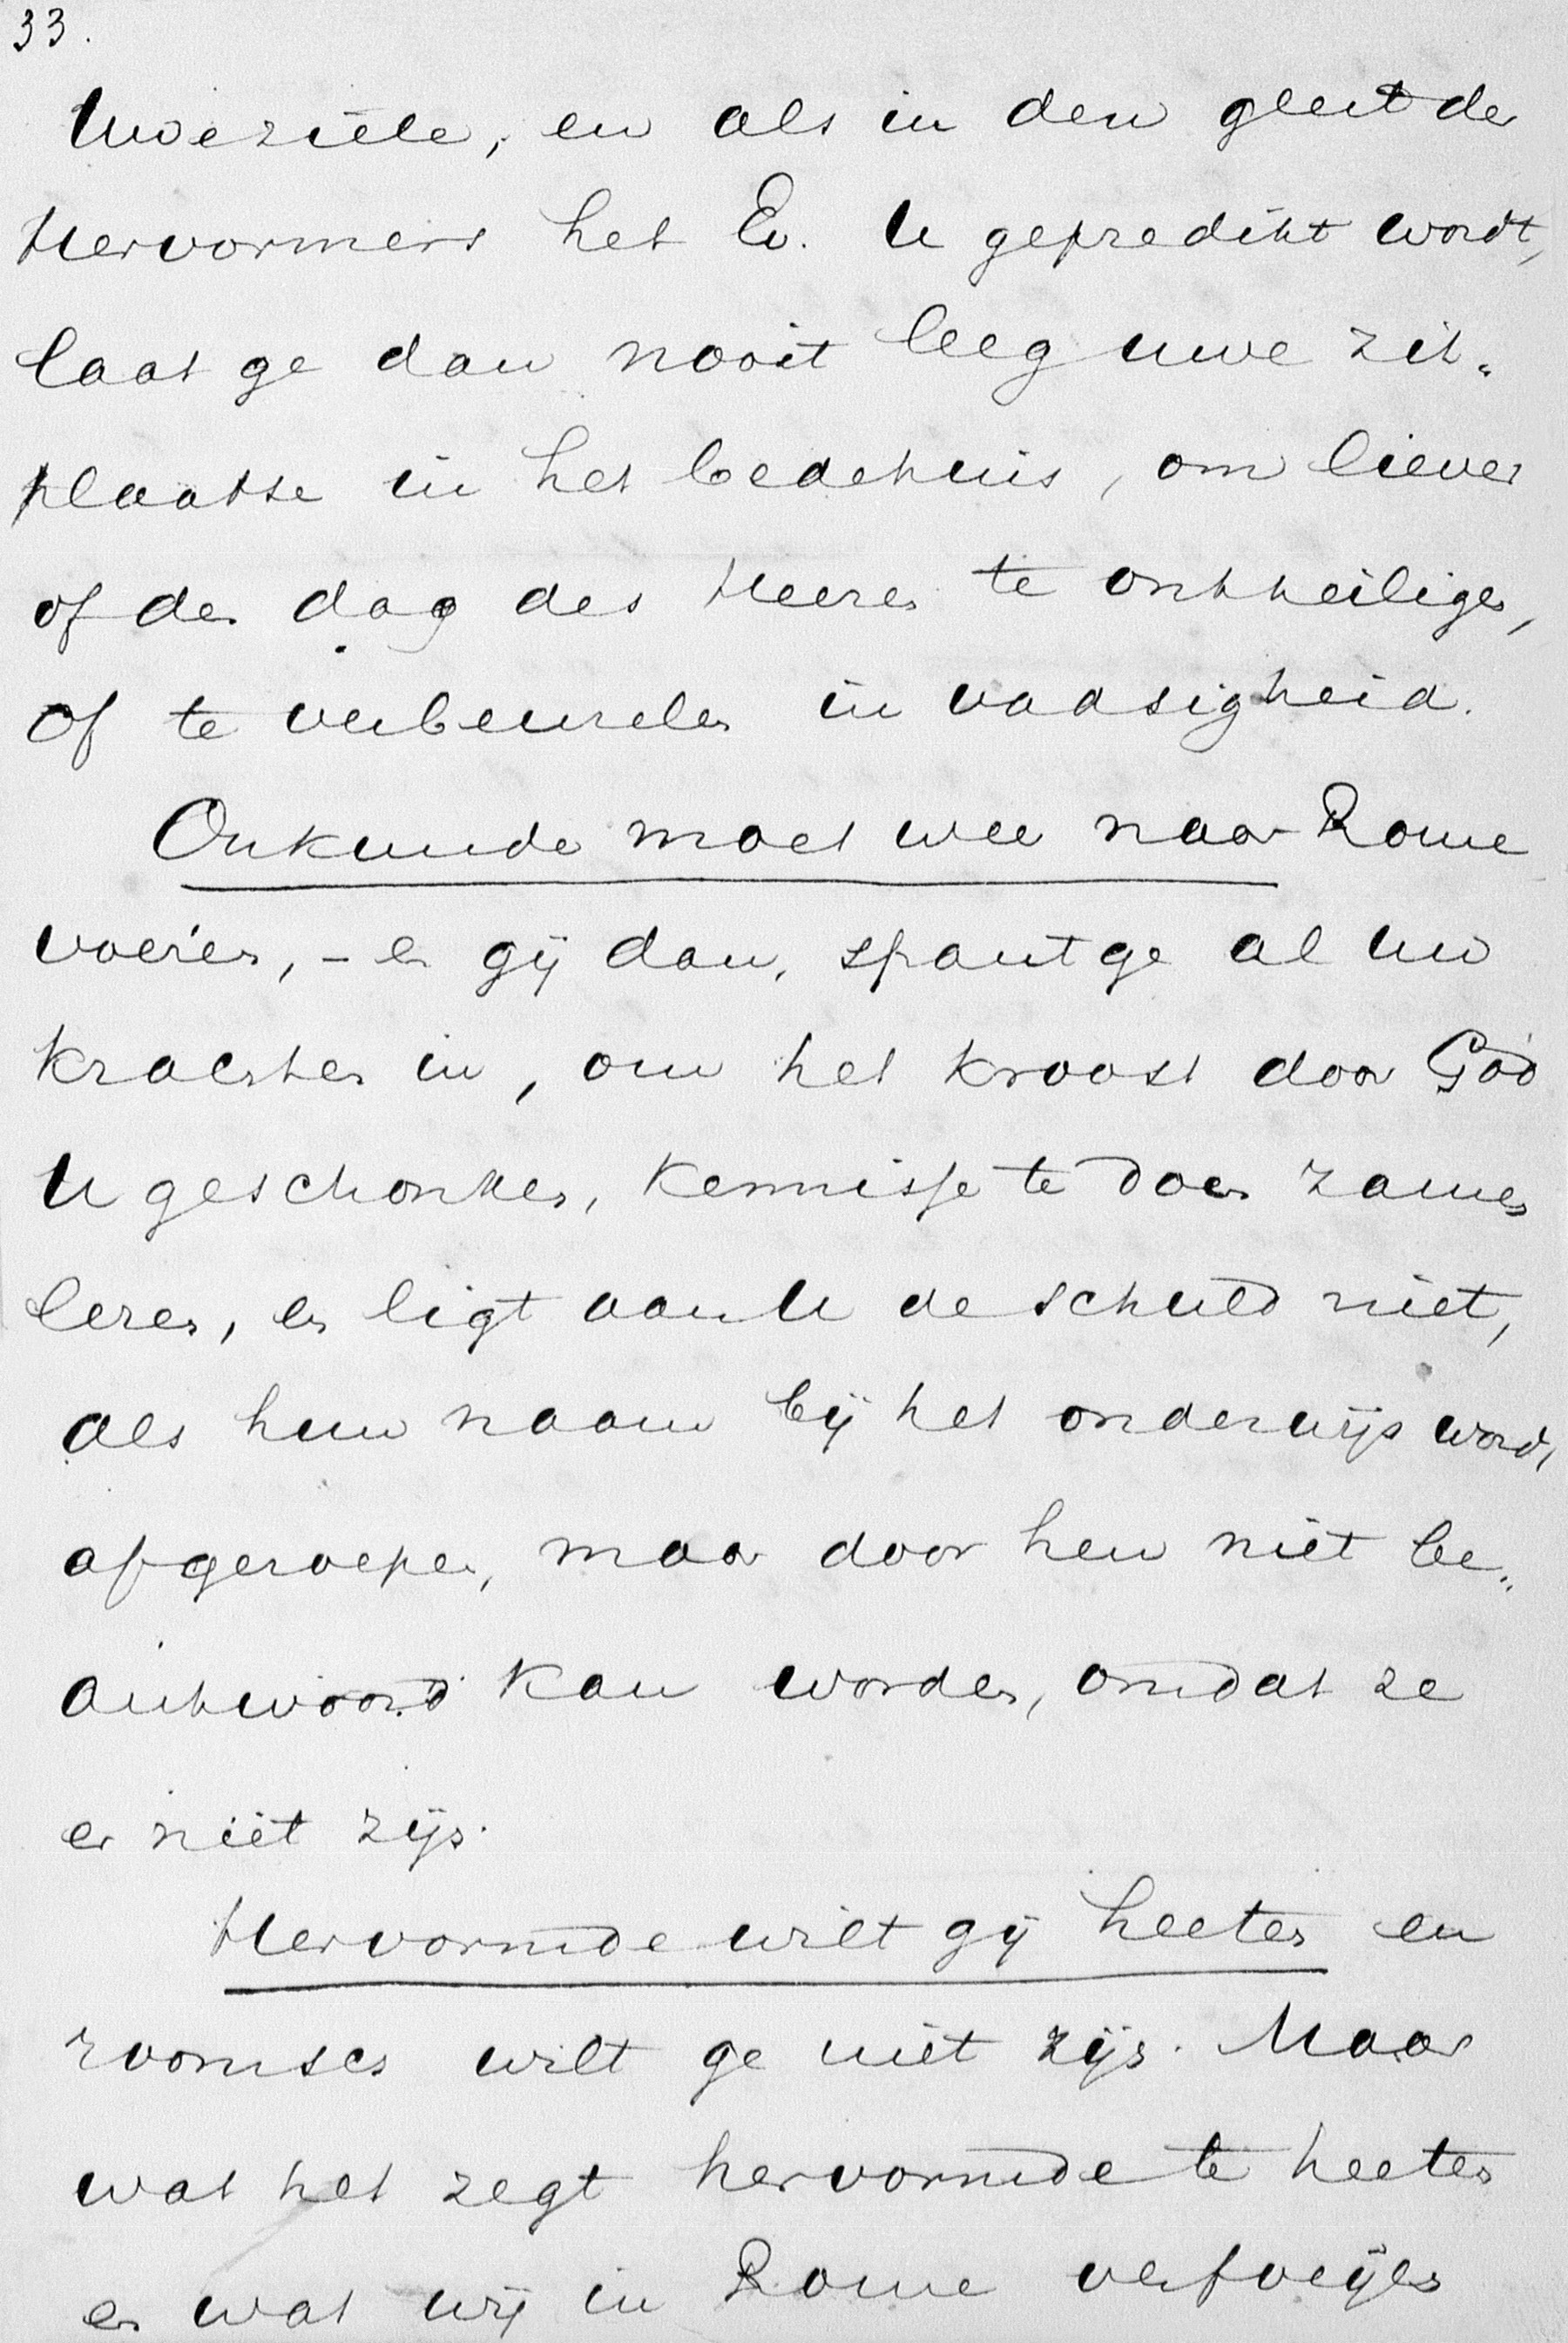 33.
Uwe ziele, en als in den geest der
Hervormers het Ev. U gepredikt wordt,
laat ge dan nooit leeg uwe zit„
plaatse in het bedehuis, om liever
of den dag des Heeren te ontheiligen,
of te verbeuzelen in vadsigheid.
Onkunde moet wee naar Rome
voeren, – en gij dan, spant ge al uw
krachten in, om het kroost door God
U geschonken, kennisse te doen zame
len, er ligt aan U de schuld niet,
als hun naam bij het onderwijs wordt
afgeroepen, maar door hen niet be„
antwoord kan worden, omdat ze
er niet zijn.
Hervormde wilt gij heeten en
roomsch wilt ge niet zijn. Maar
wat het zegt hervormde te heeten
en wat wij in Rome verfoeijen